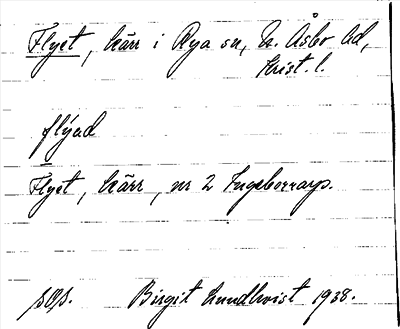 Flyet, kärr i Rya sn, N. Åsbo hd,
Krist. l.
flýad
Flyet, kärr, nr 2 Ingeborrarp.
sOs. Birgit Lundkvist 1938.